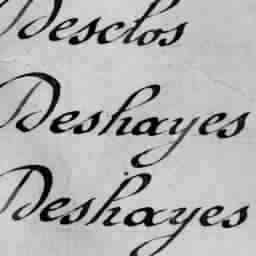 Desclos
Deshayes
Deshayes